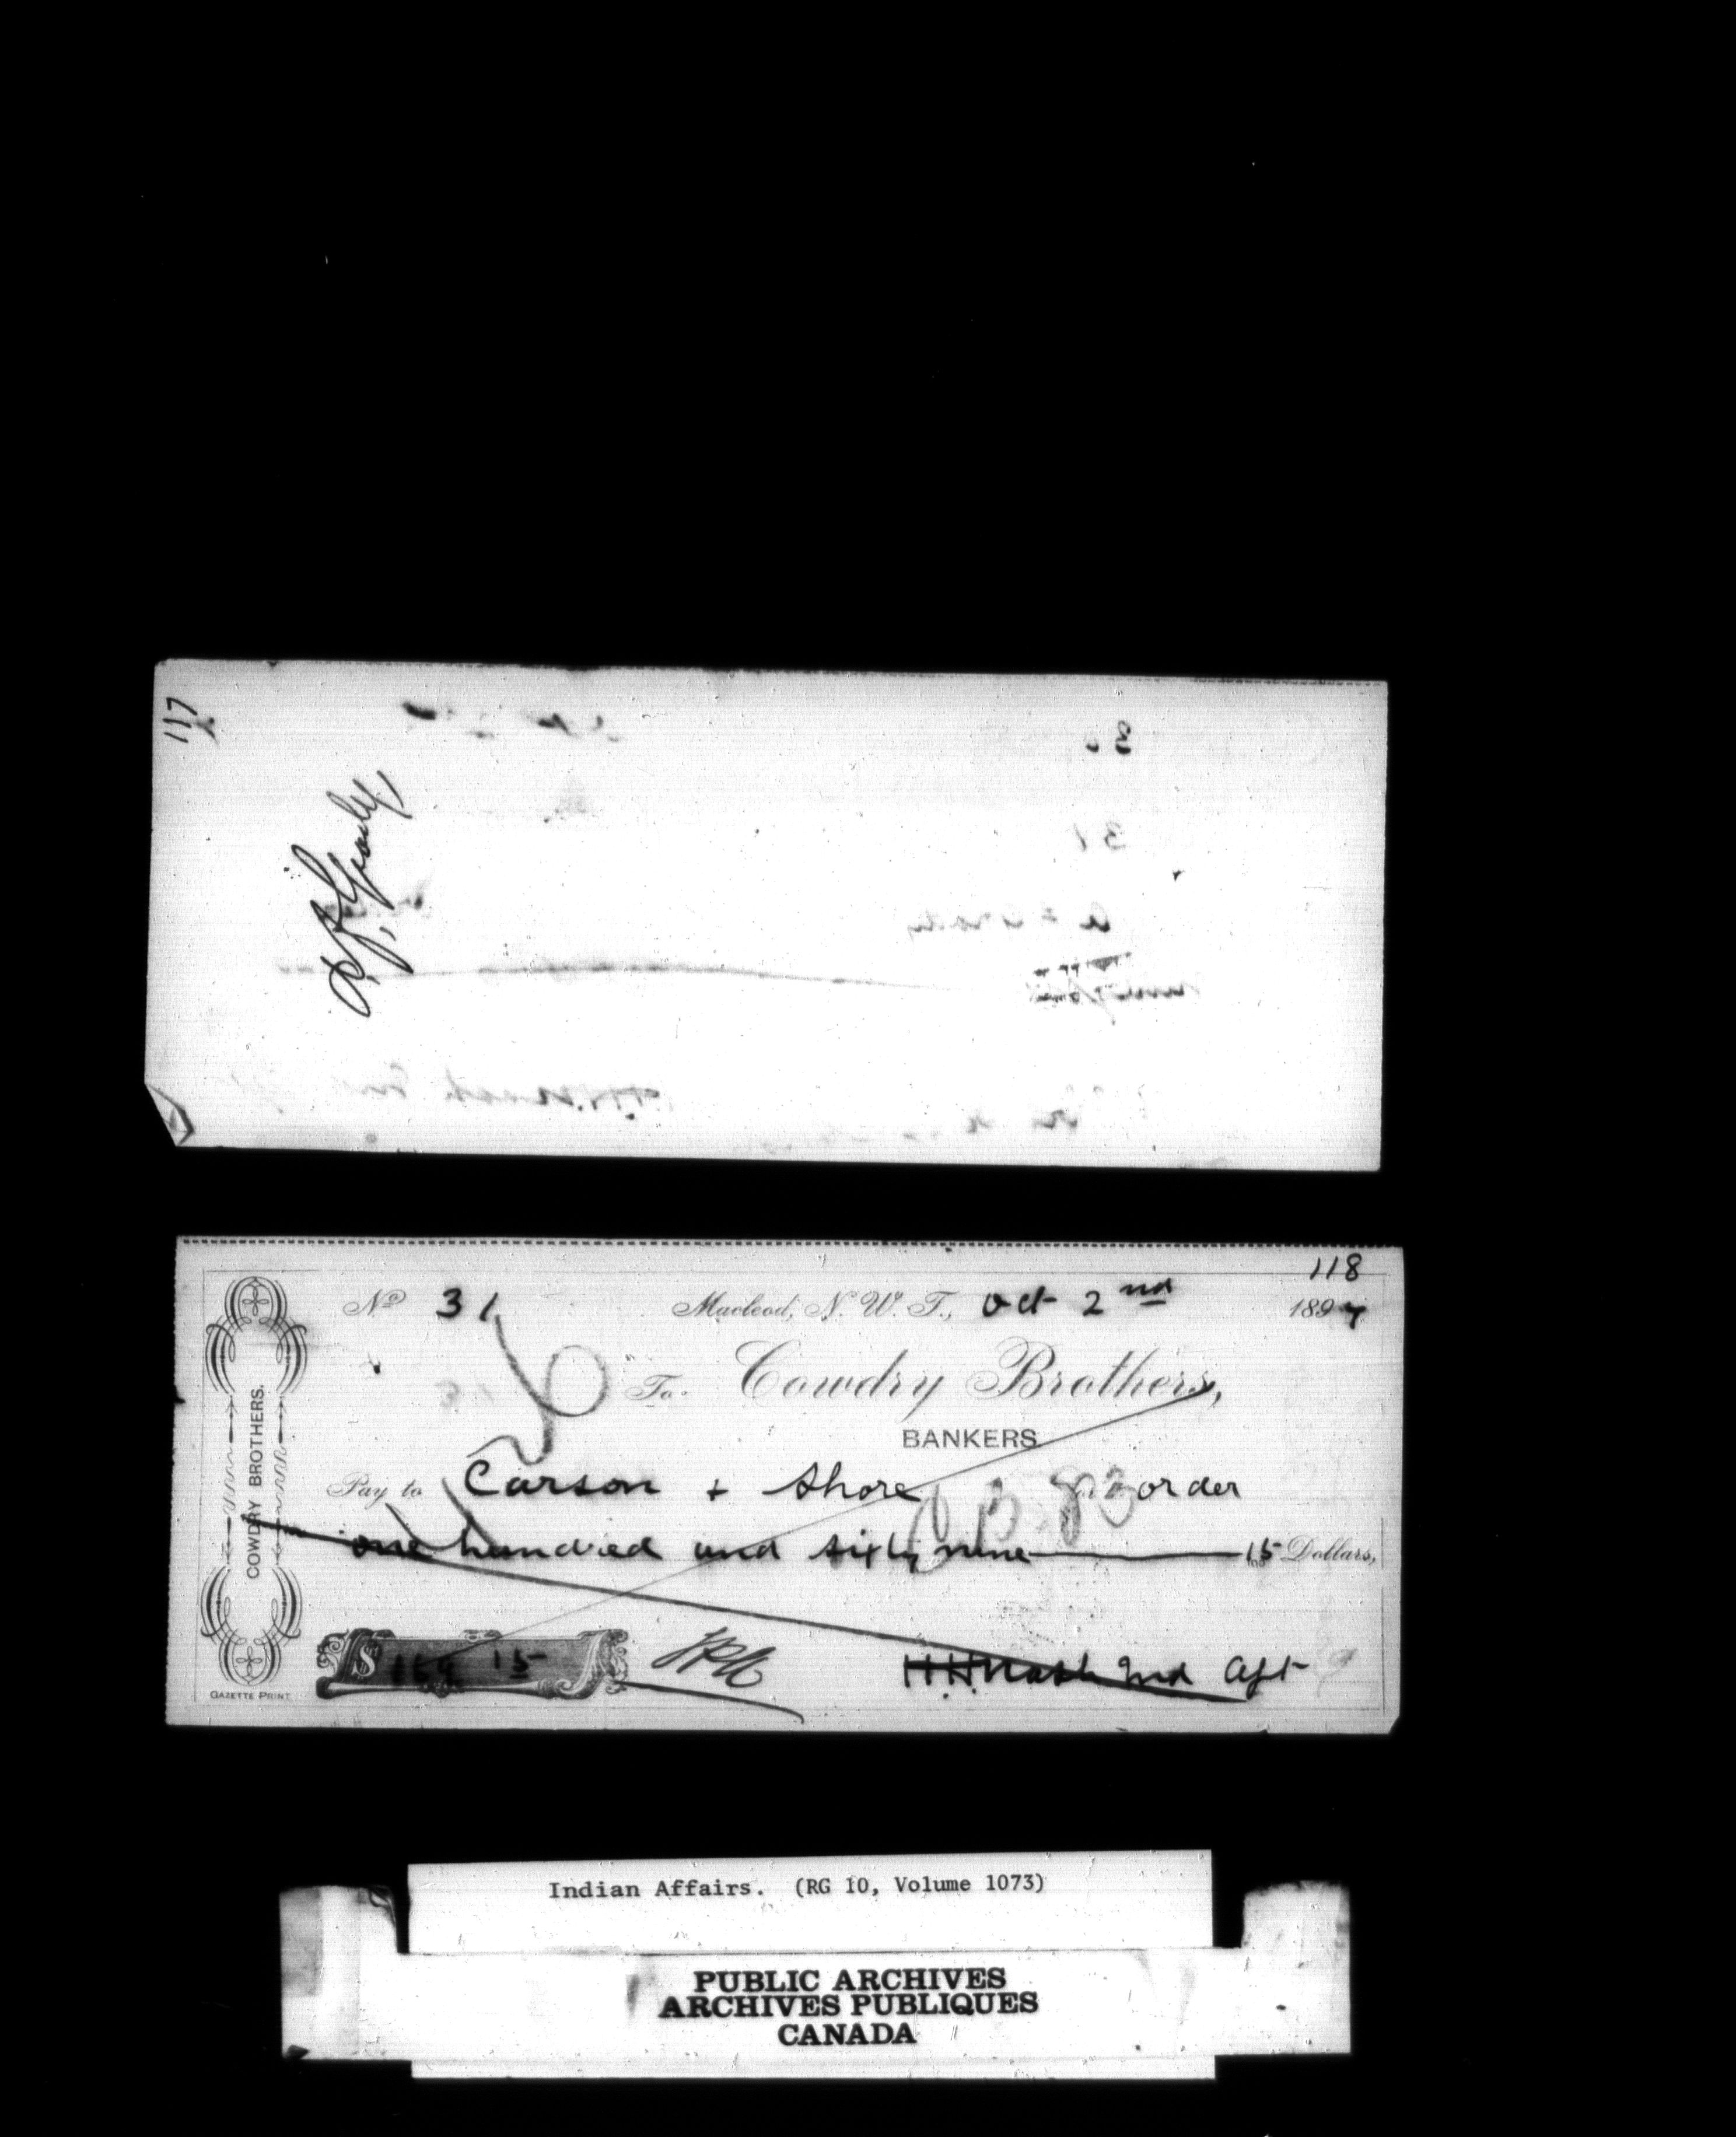 117
A. F. Grady
118
No 31 Macleod, N. W. T., Oct 2nd 1897
To Cowdry Brothers,
BANKERS
Pay to Carson + Shore order
one hundred and sixty nine 15 Dollars,
$ 169 15
H.H. Nash Ind Agt
COWDRY BROTHERS.
GAZETTE PRINT
Indian Affairs. (RG 10, Volume 1073)
PUBLIC ARCHIVES
ARCHIVES PUBLIQUES
CANADA